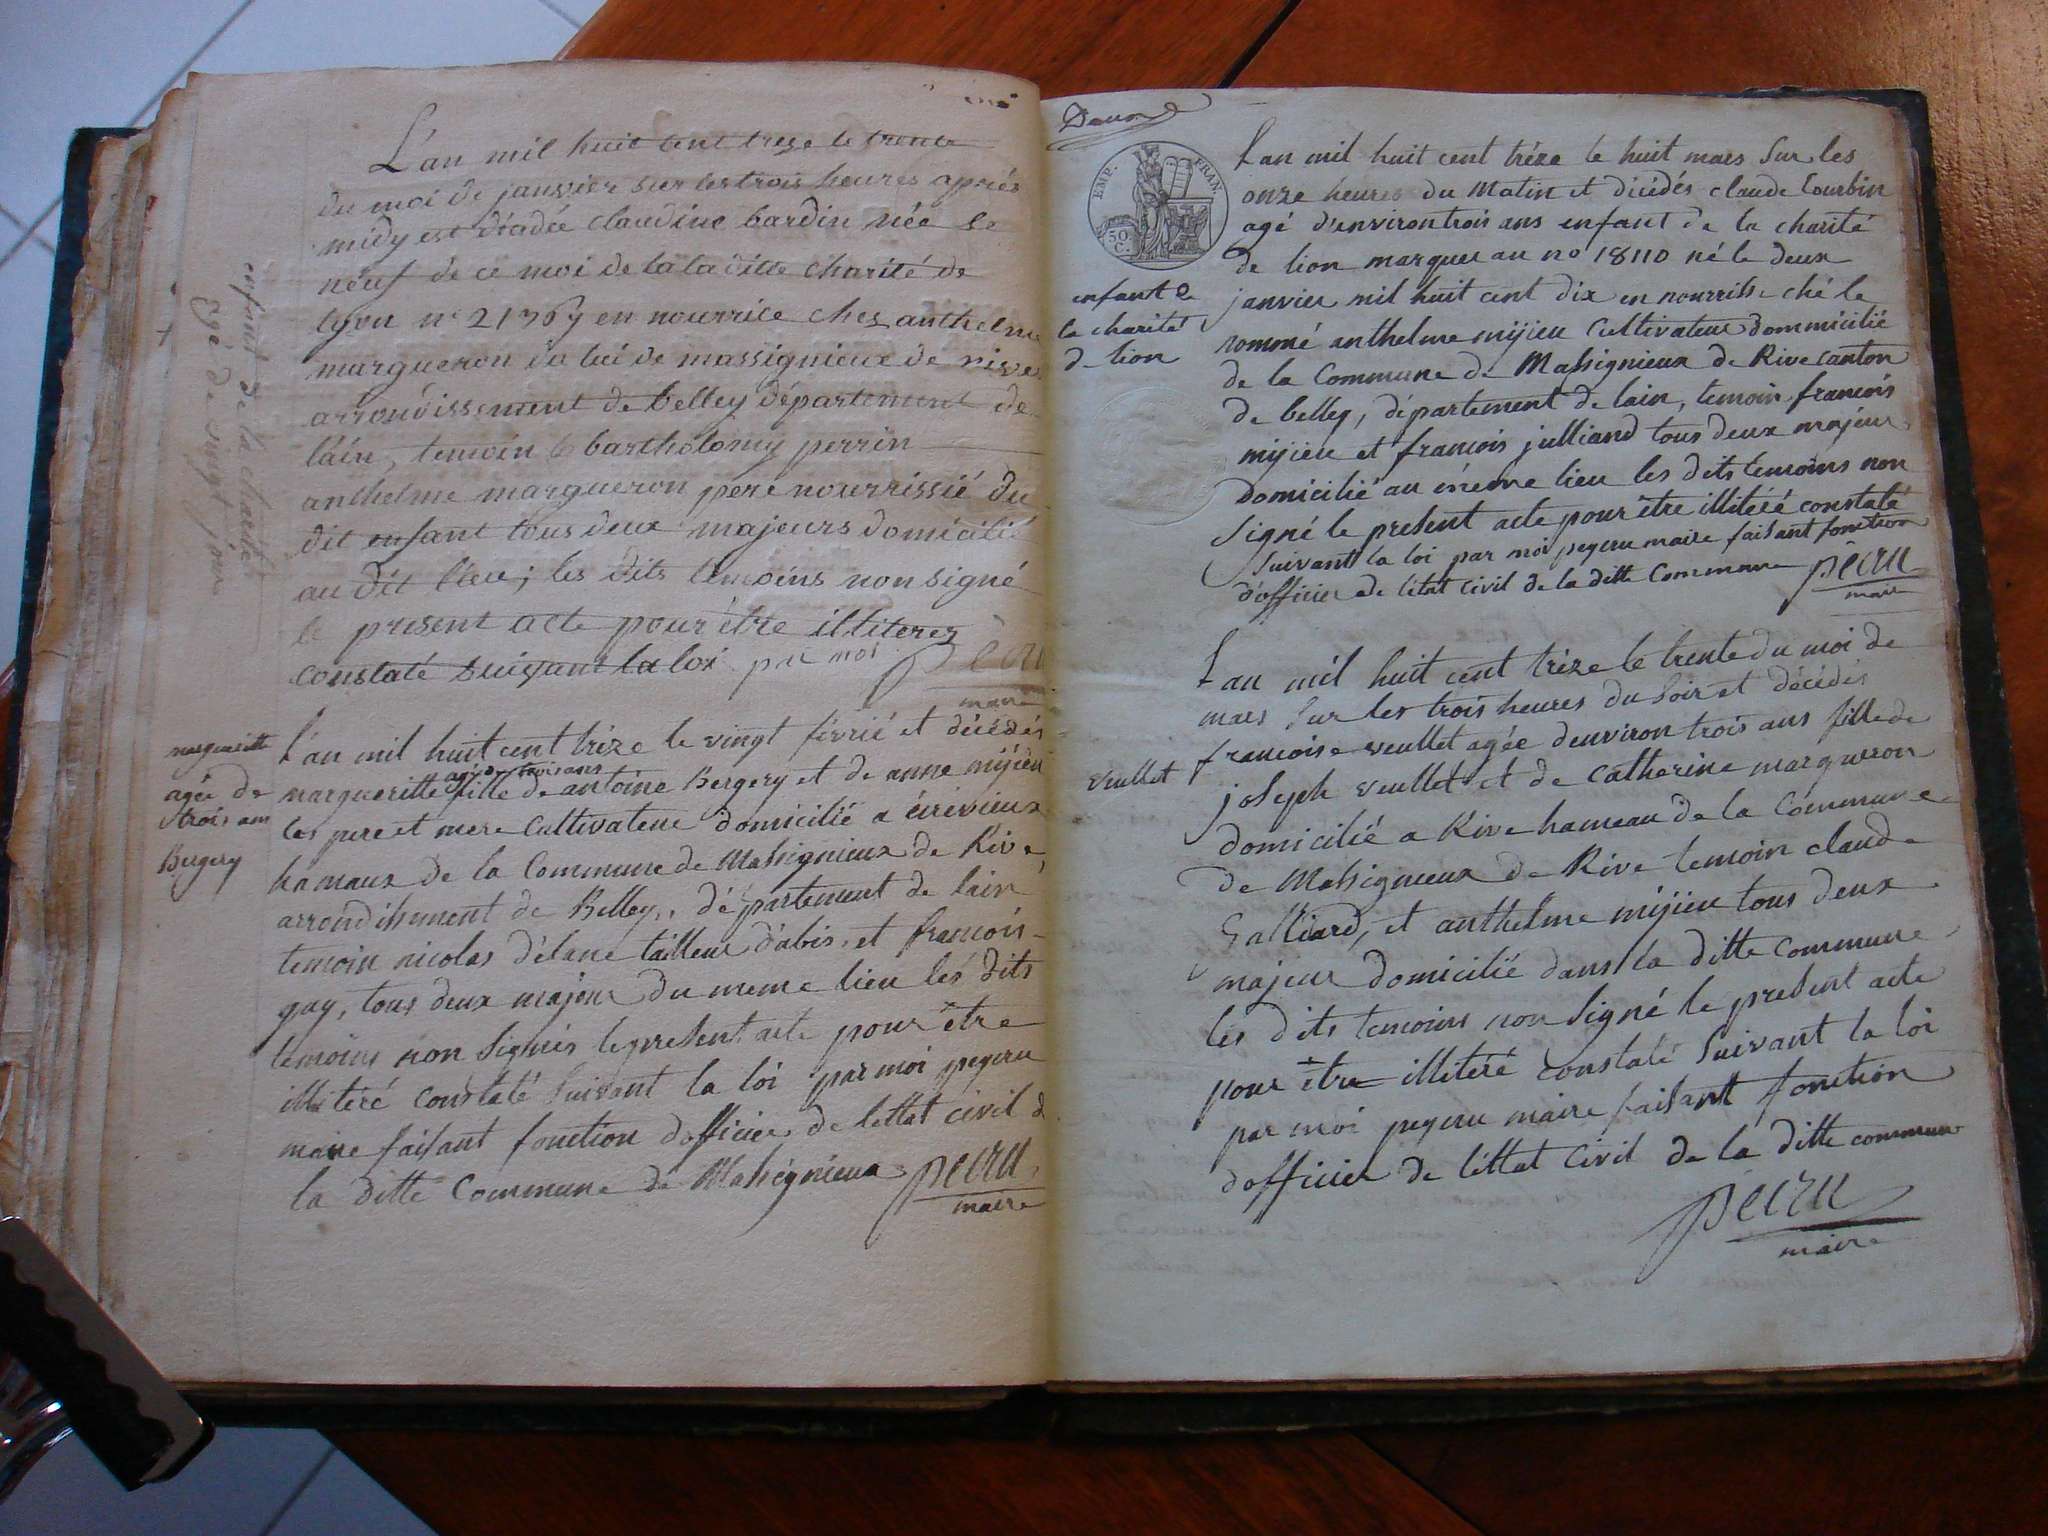 L'an mil huit cent treze le trente
du moi de janvier sur les trois heures aprés
midy est décadée claudine bardin née le
neuf de ce moi de la laditte charité de
lyon n° 21369 en nourrice chez anthelme
margueron du lui de massignieux de rive
arrondissement de belley département de
l'ain, temoin bartholomy perrin
anthelme margueron pere nourrissié du
dit enfant tous deux majeurs domicilié
au dit lieu; les dits temoins non signé
le present acte pour être illiterez
constaté suivant la loi par moi
maire
enfant de la charité
agé de vingt jours
margueritte
agée de
trois ans
Bergery
L'an mil huit cent trèze le vingt févrié et décédés
agé de trois ans
margueritte fille de antoine Bergery et de anne mijieu
les pere et mere Cultivateur domicilié a
hamaux de la Commune de Massignieux de Rive,
arrondissment de Belley, département de lain
temoin nicolas d'élane tailleur d'abis, et francois
guy, tous deux majeur du meme lieu les dits
temoins non signés le present acte pour être
illitéré constaté suivant la loi par moi peyeru
maire faisant fonction dofficier de lettat civil d
la ditte Commune de Massignieux
maire
EMP. FRAN
50 C.
enfant de
la charité
de lion
Lan mil huit cent trèze le huit mars Sur les
onze heures du Matin et décédés claude Courbin
agé d'environ trois ans enfant de la charité
de lion marquer au no 18110 né le deux
janvier mil huit cent dix en nourriss ché le
nommé anthelme mijieu Cultivateur dommicilié
de la Commune de Massignieux de Rive canton
de belley, département de lain, temoin francois
mijieu et francois julliand tous deux majeur
domicilié au méme lieu les dits temoins non
signé le present acte pour être illitéré constaté
suivant la loi par moi peyeru maire faisant fonction
d'officier de létat civil de la ditte Commune
maire
veullet
Lan mil huit cent trèze le trente du moi de
mars sur les trois heures du soir et décédés
francoise veullet agée d'environ trois ans fille de
joseph veullet et de Catherine margueron
domicilié a Rive hameau de la Commune
de Massignieux de Rive temoin claude
Galliard, et anthelme mijieu tous deux
majeur domicilié dans la ditte commune
les dits temoins non signé le present acte
pour être illitéré constaté suivant la loi
par moi peyeru maire faisant fonction
dofficier de léttat civil de la ditte commune
maire